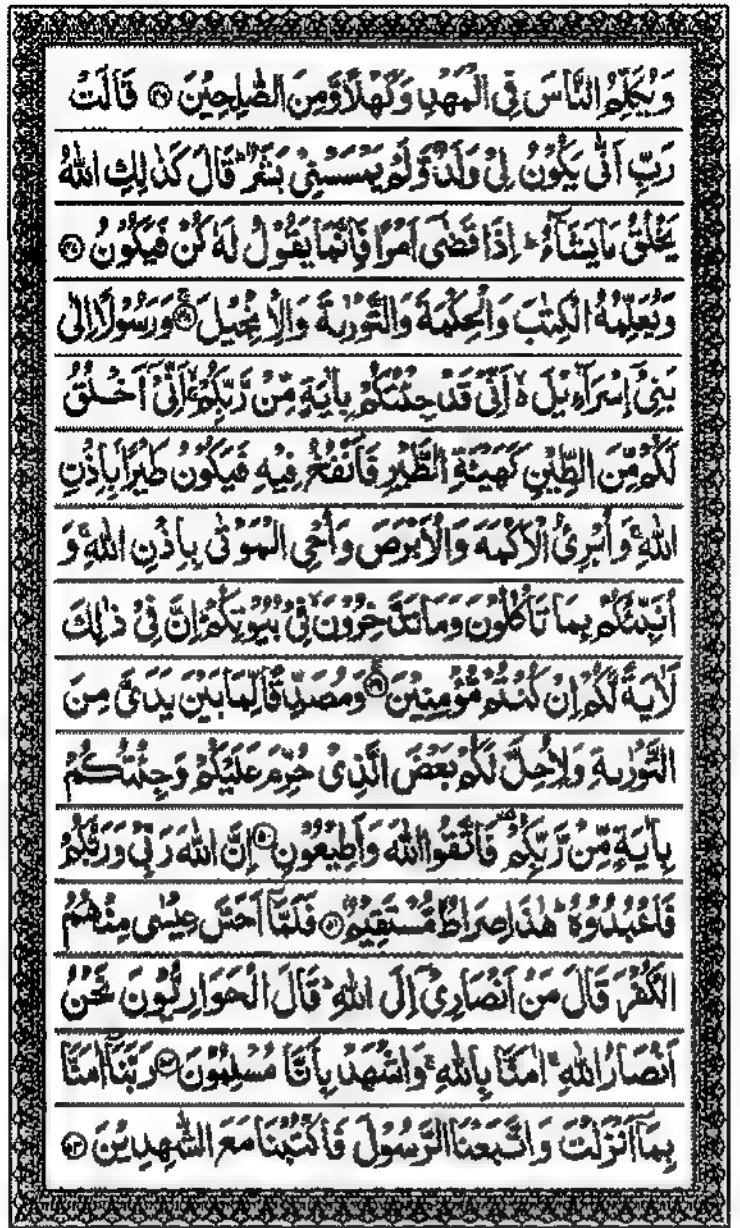 وَيُكَلِّمُ النَّاسَ فِي الْمَهْدِ وَكَهْلًا وَّمِنَ الصّٰلِحِيْنَ ۝۴۶ قَالَتْ
رَبِّ اَنّٰى يَكُوْنُ لِيْ وَلَدٌ وَّلَمْ يَمْسَسْنِيْ بَشَرٌ ؕ قَالَ كَذٰلِكِ اللّٰهُ
يَخْلُقُ مَا يَشَآءُ ؕ اِذَا قَضٰۤى اَمْرًا فَاِنَّمَا يَقُوْلُ لَهٗ كُنْ فَيَكُوْنُ ۝۴۷
وَيُعَلِّمُهُ الْكِتٰبَ وَالْحِكْمَةَ وَالتَّوْرٰىةَ وَالْاِنْجِيْلَ ۝۴۸ وَرَسُوْلًا اِلٰى
بَنِيْۤ اِسْرَآءِيْلَ ۙ اَنِّيْ قَدْ جِئْتُكُمْ بِاٰيَةٍ مِّنْ رَّبِّكُمْ ۙ اَنِّيْۤ اَخْلُقُ
لَكُمْ مِّنَ الطِّيْنِ كَهَيْـَٔةِ الطَّيْرِ فَاَنْفُخُ فِيْهِ فَيَكُوْنُ طَيْرًا بِاِذْنِ
اللّٰهِ ۚ وَاُبْرِئُ الْاَكْمَهَ وَالْاَبْرَصَ وَاُحْيِ الْمَوْتٰى بِاِذْنِ اللّٰهِ ۚ وَ
اُنَبِّئُكُمْ بِمَا تَاْكُلُوْنَ وَمَا تَدَّخِرُوْنَ ۙ فِيْ بُيُوْتِكُمْ ؕ اِنَّ فِيْ ذٰلِكَ
لَاٰيَةً لَّكُمْ اِنْ كُنْتُمْ مُّؤْمِنِيْنَ ۝۴۹ وَمُصَدِّقًا لِّمَا بَيْنَ يَدَيَّ مِنَ
التَّوْرٰىةِ وَلِاُحِلَّ لَكُمْ بَعْضَ الَّذِيْ حُرِّمَ عَلَيْكُمْ وَجِئْتُكُمْ
بِاٰيَةٍ مِّنْ رَّبِّكُمْ ۟ فَاتَّقُوا اللّٰهَ وَاَطِيْعُوْنِ ۝۵۰ اِنَّ اللّٰهَ رَبِّيْ وَرَبُّكُمْ
فَاعْبُدُوْهُ ؕ هٰذَا صِرَاطٌ مُّسْتَقِيْمٌ ۝۵۱ فَلَمَّاۤ اَحَسَّ عِيْسٰى مِنْهُمُ
الْكُفْرَ قَالَ مَنْ اَنْصَارِيْۤ اِلَى اللّٰهِ ؕ قَالَ الْحَوَارِيُّوْنَ نَحْنُ
اَنْصَارُ اللّٰهِ ۚ اٰمَنَّا بِاللّٰهِ ۚ وَاشْهَدْ بِاَنَّا مُسْلِمُوْنَ ۝۵۲ رَبَّنَاۤ اٰمَنَّا
بِمَاۤ اَنْزَلْتَ وَاتَّبَعْنَا الرَّسُوْلَ فَاكْتُبْنَا مَعَ الشّٰهِدِيْنَ ۝۵۳